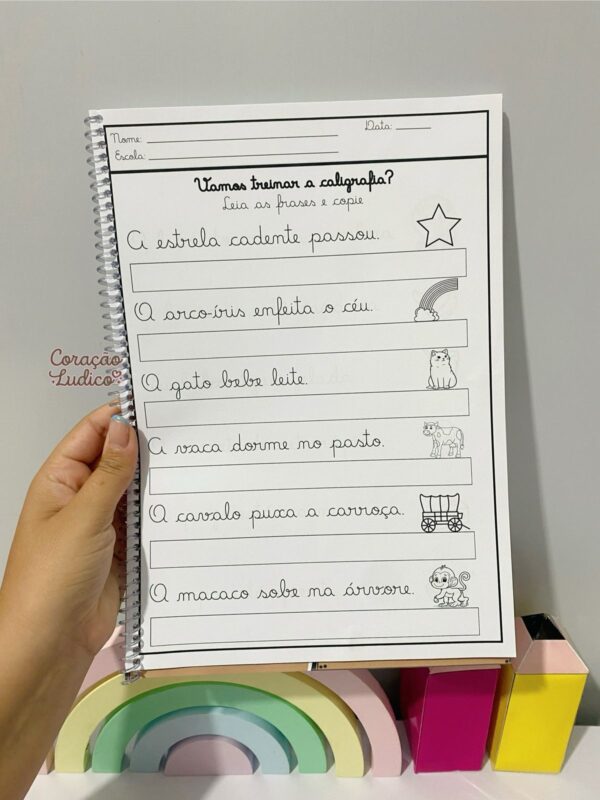 Nome:
Data:
Escola:
Vamos treinar a caligrafia?
Leia as frases e copie
A estrela cadente passou.
O arco-íris enfeita o céu.
O gato bebe leite.
A vaca dorme no pasto.
O cavalo puxa a carroça.
O macaco sobe na árvore.
Coração
Ludico